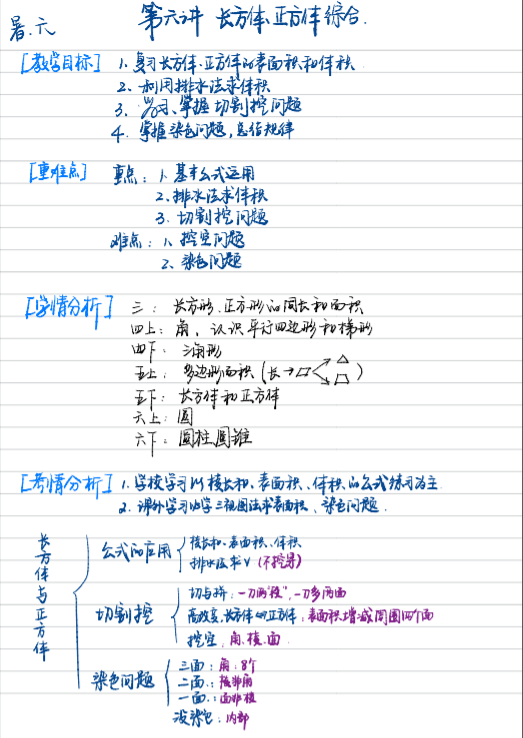 暑.六
第六讲 长方体、正方体综合.
[教学目标] 1. 复习长方体、正方体的表面积和体积
2. 利用排水法求体积
3. 学习、掌握切割挖问题
4. 掌握染色问题,总结规律
[重难点] 重点: 1. 基本公式运用
2. 排水法求体积
3. 切割挖问题
难点: 1. 挖空问题
2. 染色问题
[学情分析] 三: 长方形、正方形的周长和面积
四上: 角, 认识平行四边形和梯形
四下: 三角形
五上: 多边形面积 (长→▱<△ ⏢)
五下: 长方体和正方体
六上: 圆
六下: 圆柱、圆锥
[考情分析] 1. 学校学习以棱长和、表面积、体积的公式练习为主
2. 课外学习如学三视图法求表面积、染色问题.
长方体与正方体
公式的应用
棱长和、表面积、体积
排水法求V (不挖导)
切割挖
切与拼: 一刀两"段", 一刀多两面
高改变,长方体→正方体: 表面积增减周围四个面
挖空: 角、棱、面
染色问题
三面: 角: 8个
二面: 棱非角
一面: 面非棱
没染色: 内部